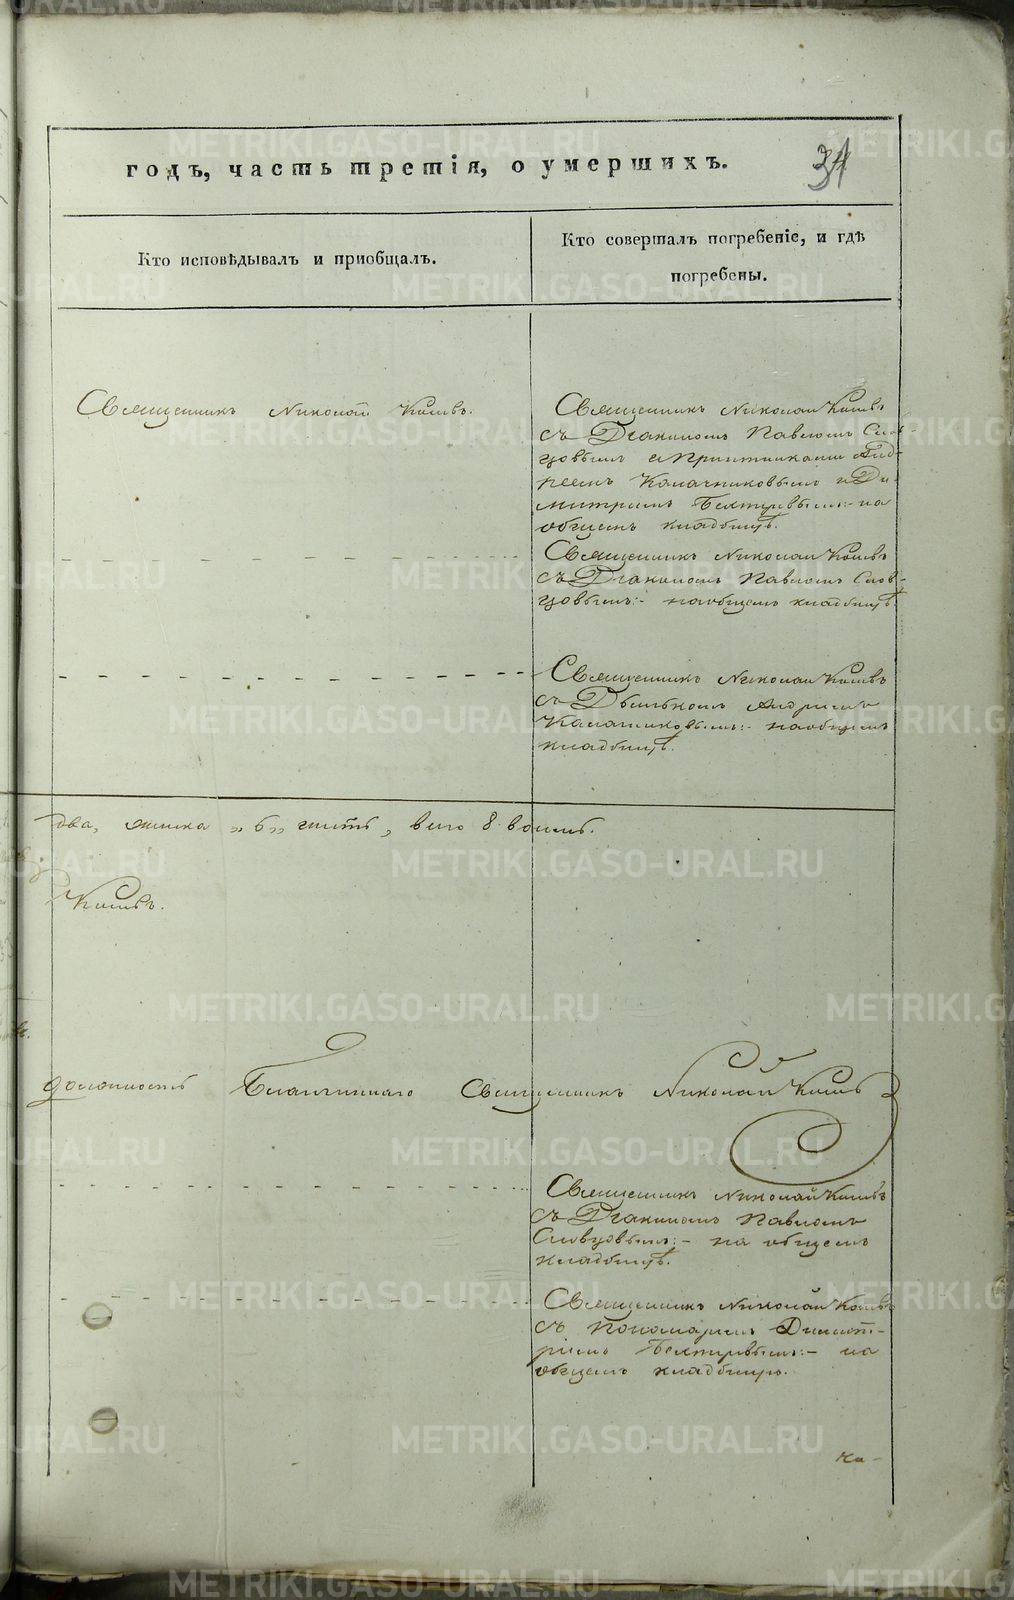 годъ, часть третія, о умершихъ.
31
Кто исповѣдывалъ и пріобщалъ.
Кто совершалъ погребеніе, и гдѣ
погребены.
Священникъ Николай
Священникъ Николай
съ Діакономъ Павломъ Слов-
цовымъ и Причтниками Анд-
реемъ Калачниковымъ и Ди-
митріемъ на
общемъ кладбищѣ.
Священникъ Николай
съ Діакономъ Павломъ Слов-
цовымъ:- на общемъ кладбищѣ.
Священникъ Николай
съ Дьячкомъ Андреемъ
Калачниковымъ:- на общемъ
кладбищѣ.
два, женска „6„ шесть, всего 8 восемь.
должность Благочиннаго Священникъ Николай
Священникъ Николай
съ Діакономъ Павломъ
Словцовымъ:- на общемъ
кладбищѣ.
Священникъ Николай
съ пономаремъ Димит-
ріемъ на
общемъ кладбищѣ.
На-
METRIKI.GASO-URAL.RU